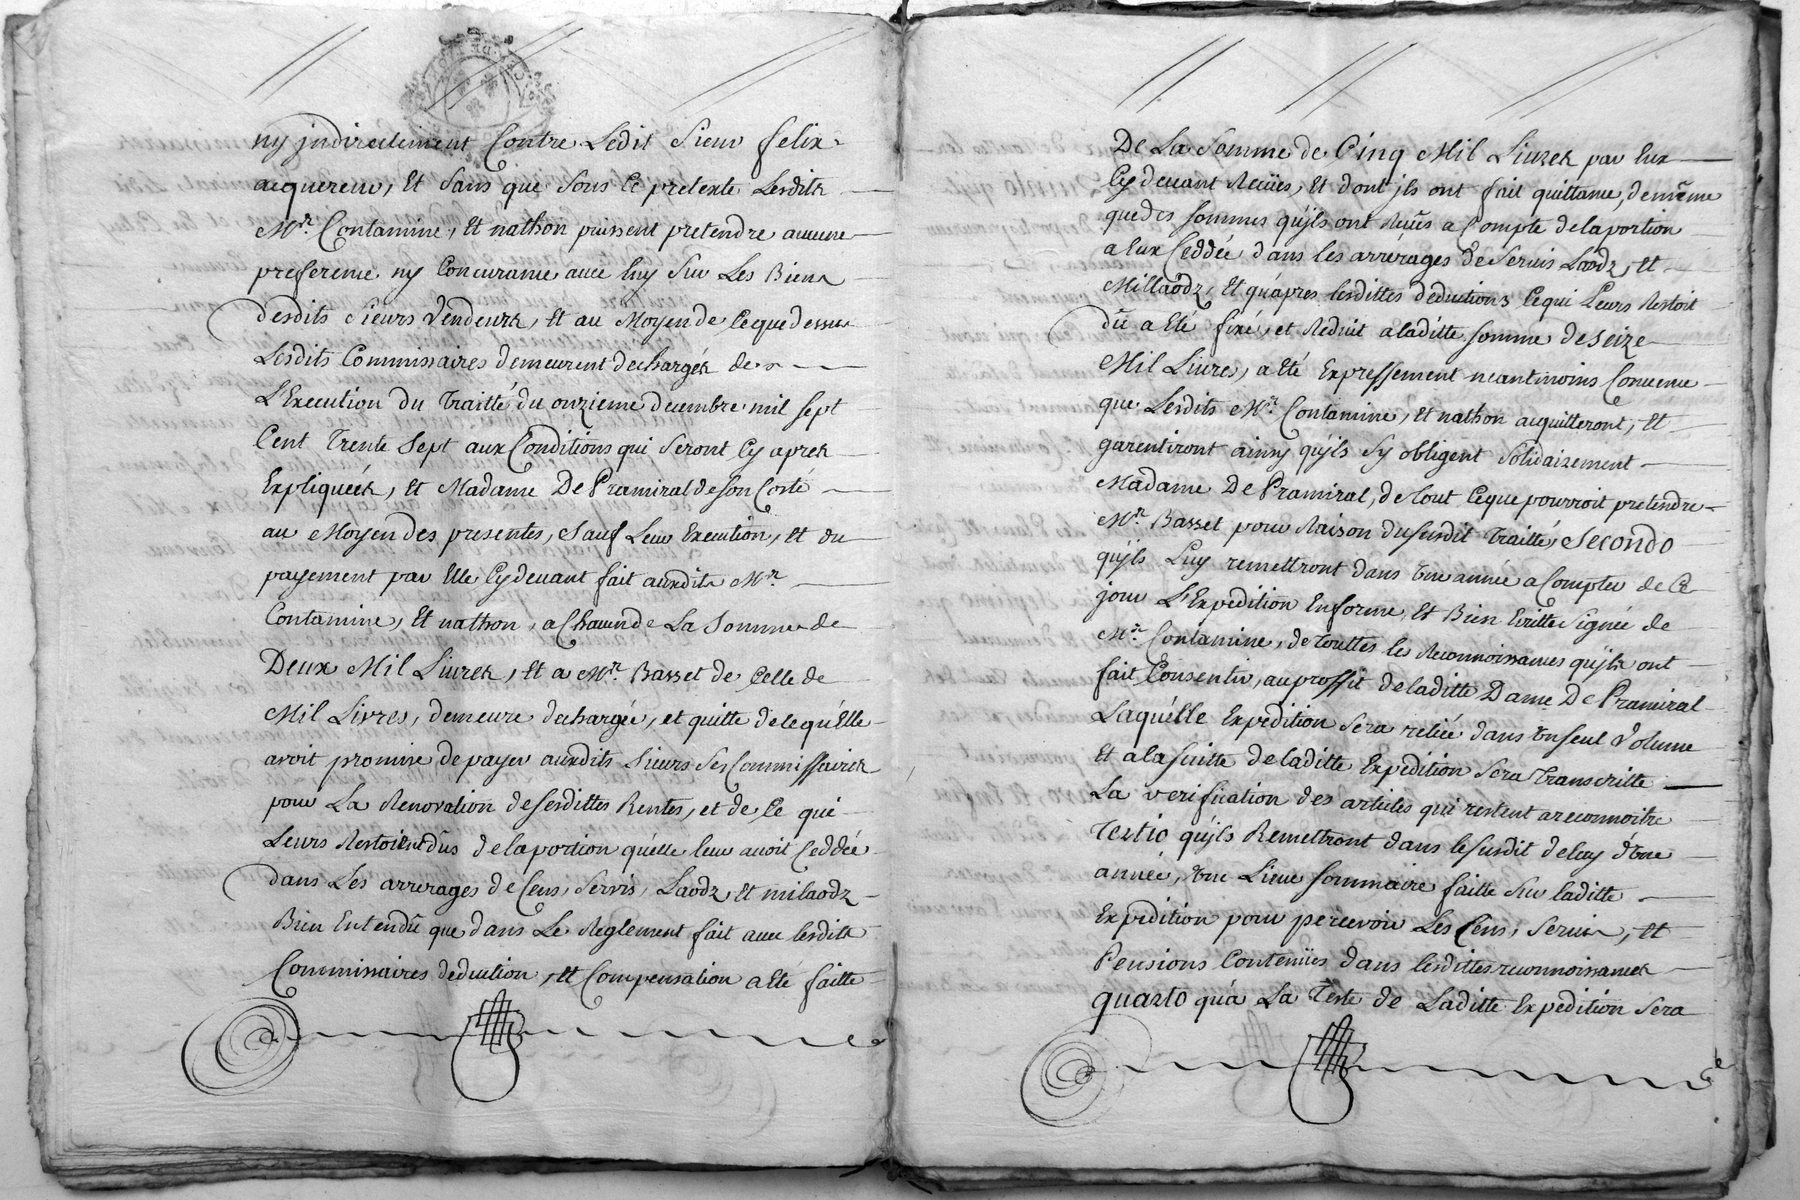 ny jndirectement Contre Ledit Sieur felix
acquereur, Et sans que sous Ce pretexte Lesdits
Mrs. Contamine, Et nathon puissent pretendre aucune
preference ny Concurrance avec luy Sur Les Biens
desdits Sieurs Vendeurs, Et au Moyen de Ceque dessus
Lesdits Commissaires demeurent dechargés de
L'Execution du Traitté du onzieme decembre mil sept
Cent Trente Sept aux Conditions qui Seront Cy apres
Expliquées, Et Madame De Pramiral de son Costé
au Moyen des presentes, Sauf Leur Execution, Et du
payement par Elle Cydevant fait auxdits Mrs
Contamine, Et nathon, a Chacun de La Somme de
Deux Mil Livres, Et a Mr. Basset de Celle de
Mil Livres, demeure dechargée, et quitte delequ'Elle
avoit promise de payer auxdits Sieurs Ses Commissaires
pour La Renovation de Sesdittes Rentes, et de Ce qui
Leurs Restoient dûs de la portion qu'elle leur avoit Ceddée
dans Les arrerages de Cens, Servis, Laodz, Et milaodz
Bien Entendû que dans Le Reglement fait avec lesdits
Commissaires deduction, Et Compensation a Eté faitte
De La Somme de Cinq Mil Livres par Eux
Cy devant Reçües, Et dont jls ont fait quittance, de même
que des sommes qu'jls ont Reçües a Compte de la portion
a Eux Ceddée dans les arrérages de Servis Laodz, Et
Millaodz, Et qu'apres lesdittes deductions Cequi Leurs Restoit
dû a Eté fixé, et Reduit a laditte somme de Seize
Mil Livres, a Eté Expressement neantmoins Convenu
que Lesdits Mrs. Contamine, Et nathon acquitteront, Et
garentiront ainsy qu'jls Sy obligent Solidairement
Madame De Pramiral, de tout Ceque pourroit pretendre
Mr. Basset pour Raison du Susdit Traitté, Secondo
qu'jls Luy remettront dans Une année a Compter de Ce
jour L'Expedition En forme, Et Bien Ecritte Signée de
Mr. Contamine, de touttes les Reconnoissances qu'jls ont
fait Consentir, au proffit de laditte Dame De Pramiral
Laquélle Expedition sera reliée dans Un seul Volume
Et a la suitte de laditte Expedition Sera Transcritte
La verification des articles qui restent a reconnoitre
Tertio qu'jls Remettront dans le susdit delay d'Une
année, Une Lieve sommaire faitte Sur laditte
Expedition pour percevoir Les Cens, Servis, Et
Pensions Contenües dans lesdittes reconnoissances
quarto qu'a La Teste de Laditte Expedition sera